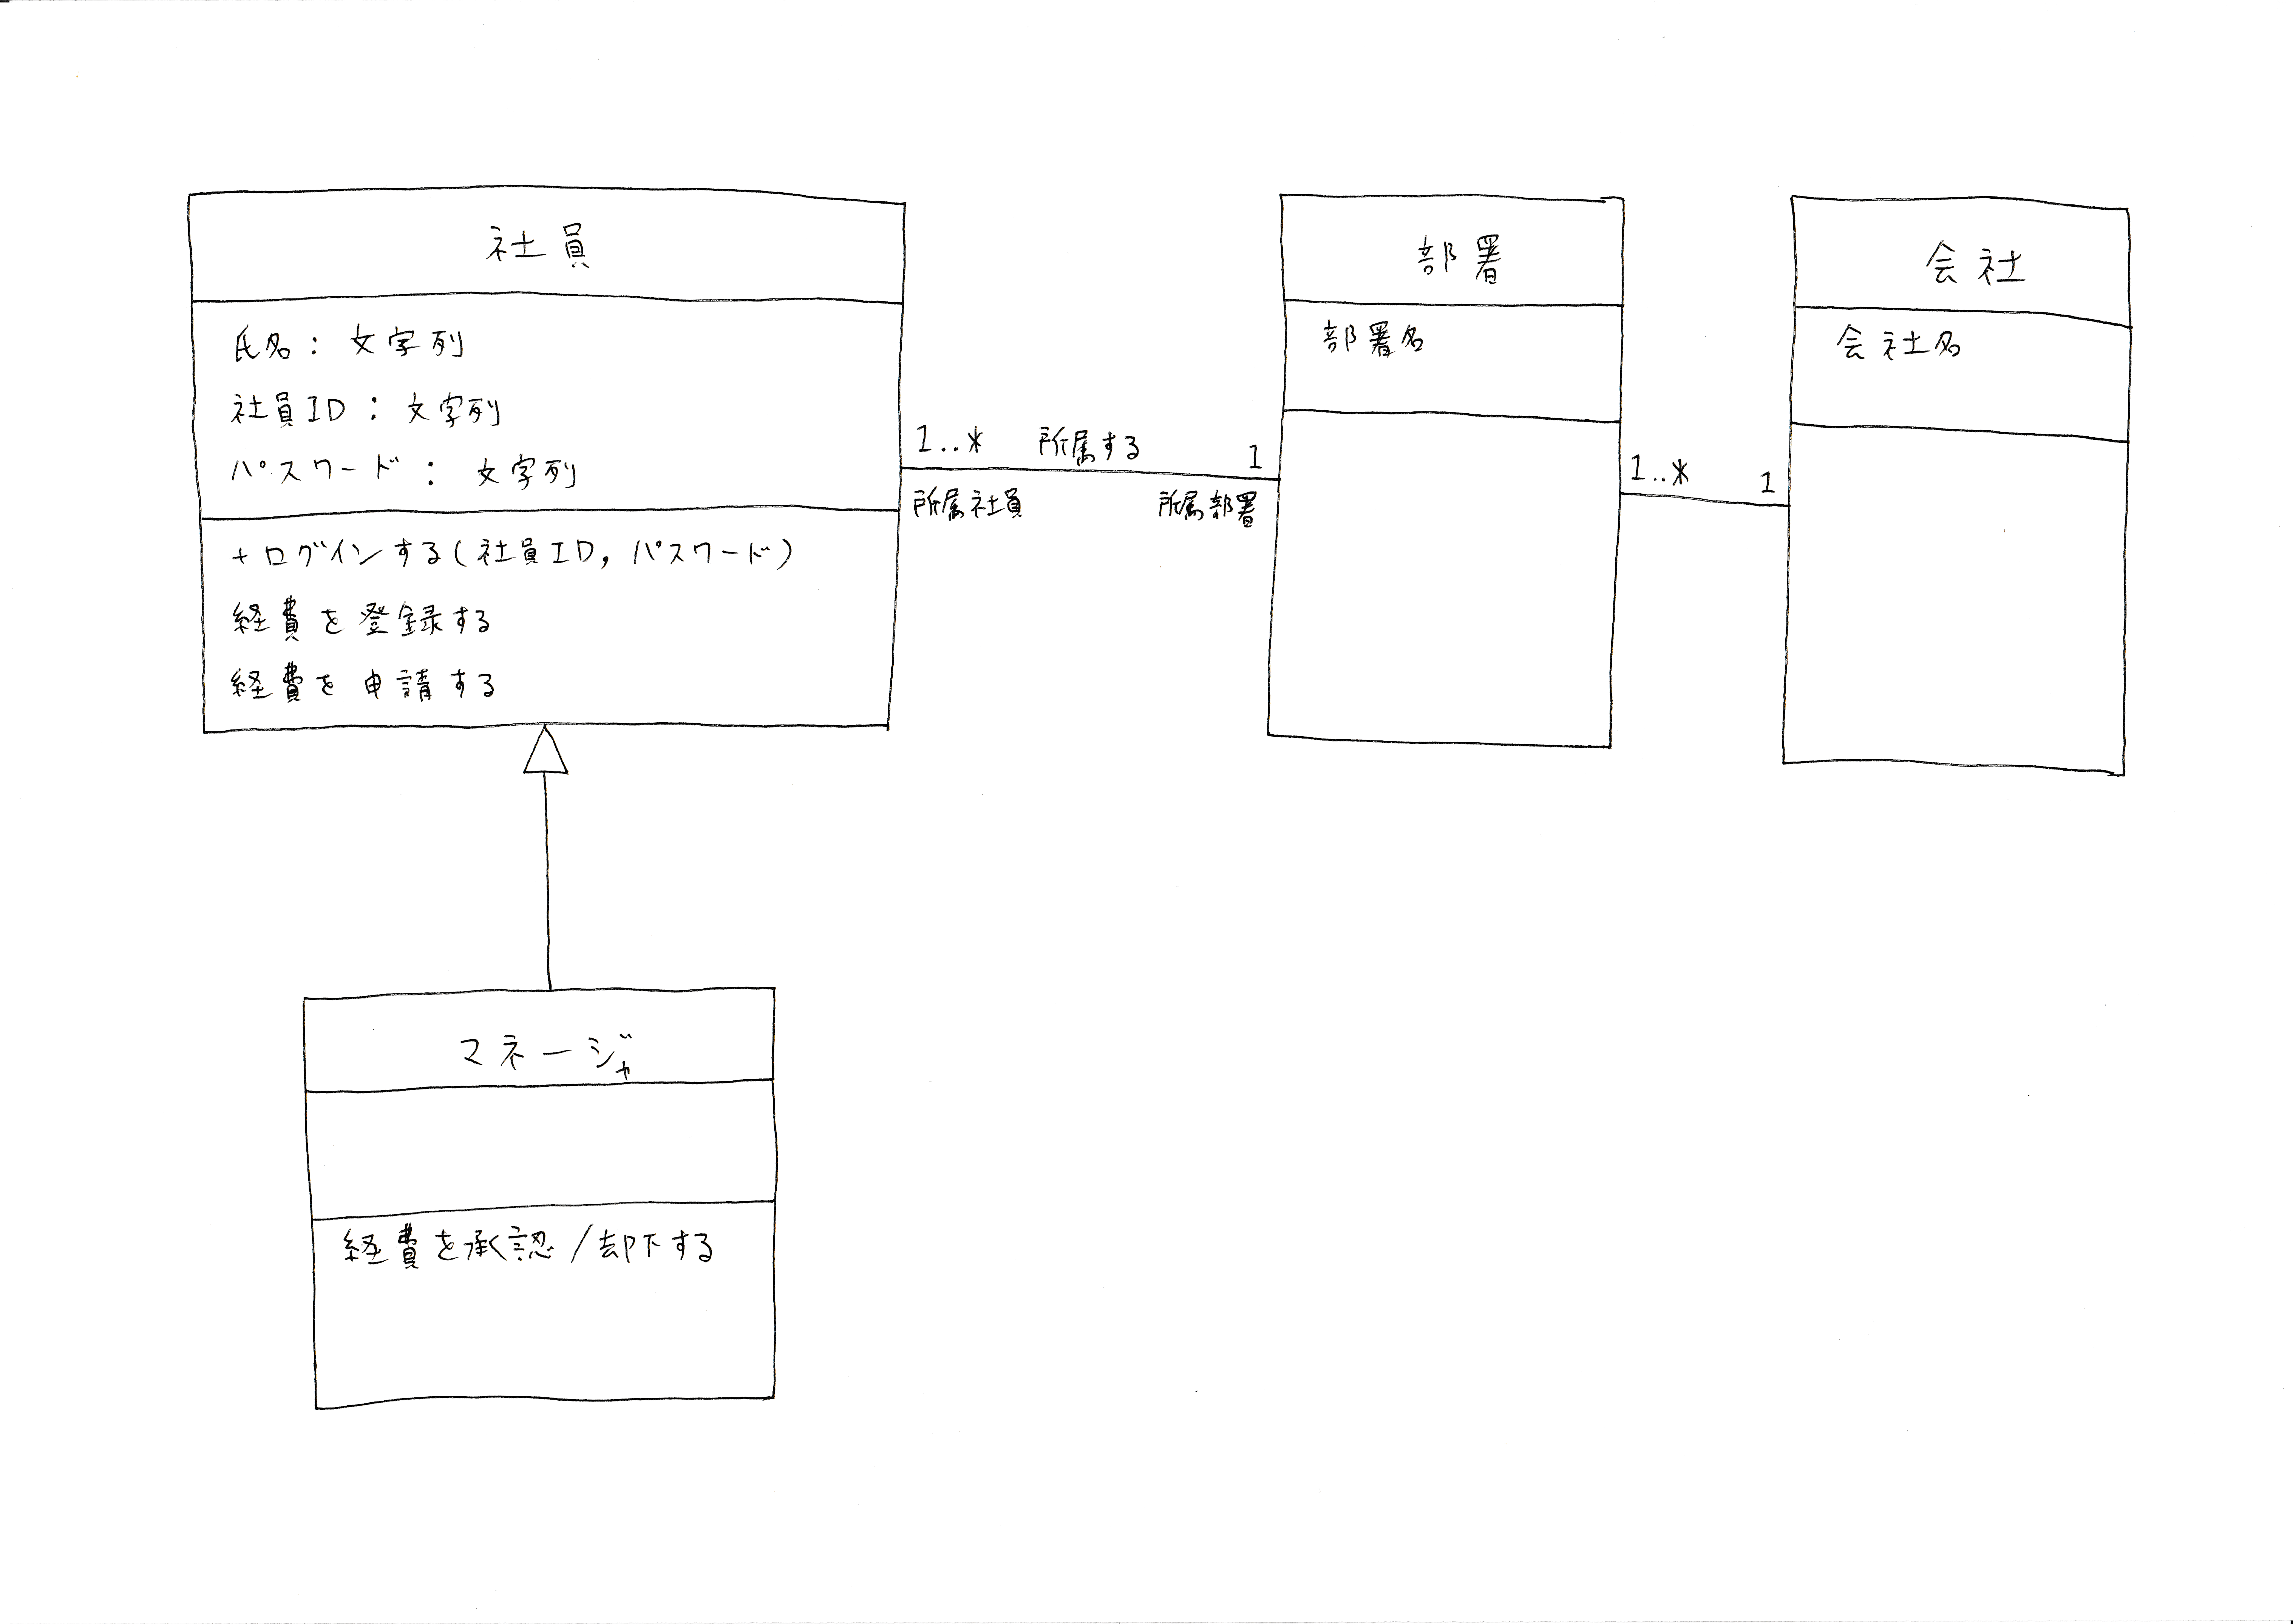 社員
氏名: 文字列
社員ID: 文字列
パスワード: 文字列
+ログインする(社員ID, パスワード)
経費を登録する
経費を申請する
1..* 所属する 1
所属社員 所属部署
部署
部署名
1..* 1
会社
会社名
マネージャ
経費を承認/却下する